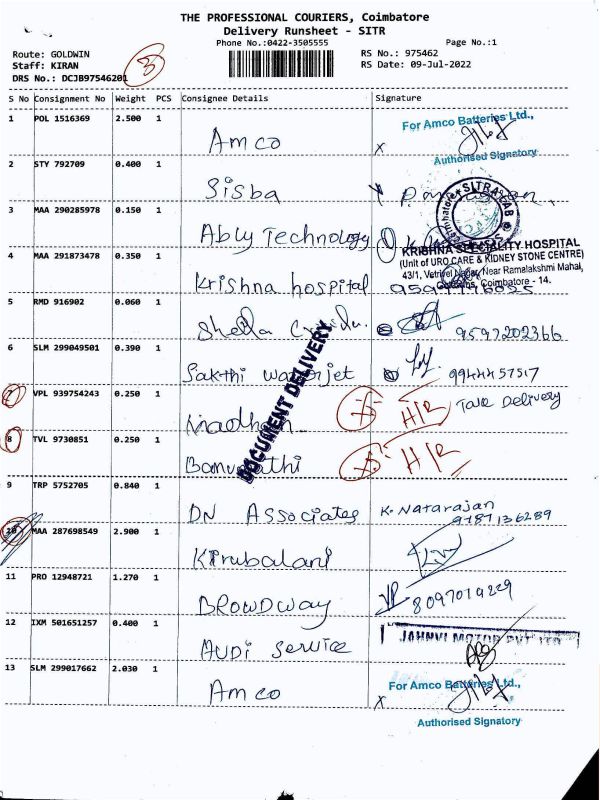 THE PROFESSIONAL COURIERS, Coimbatore
Delivery Runsheet - SITR
Phone No.:0422-3505555
Page No.:1
Route: GOLDWIN
RS No.: 975462
Staff: KIRAN
RS Date: 09-Jul-2022
DRS No.: DCJB97546201
3
S No Consignment No Weight PCS Consignee Details Signature
1 POL 1516369 2.500 1
Amco
For Amco Batteries Ltd.,
x
Authorised Signatory
2 STY 792709 0.400 1
Sisba
SITRA LAB
Coimbatore
3 MAA 290285978 0.150 1
Ably Technology
4 MAA 291873478 0.350 1
Krishna hospital
KRISHNA SPECIALITY HOSPITAL
(Unit of URO CARE & KIDNEY STONE CENTRE)
43/1, Vetrivel Nagar, Near Ramalakshmi Mahal,
Coimbatore - 14.
5 RMD 916902 0.060 1
9597202366
6 SLM 299049501 0.390 1
Sakthi waterjet
9944457517
DOCUMENT DELIVERY
7 VPL 939754243 0.250 1
Madhan
H/R
Take Delivery
8 TVL 9730851 0.250 1
H/R
9 TRP 5752705 0.840 1
DN Associates
K. Natarajan
9787136289
10 MAA 287698549 2.900 1
Kirubalani
11 PRO 12948721 1.270 1
BROWDWAY
8097019229
12 IXM 501651257 0.400 1
AUDI Service
JAHNVI MOTOR PVT LTD
13 SLM 299017662 2.030 1
Amco
For Amco Batteries Ltd.,
x
Authorised Signatory